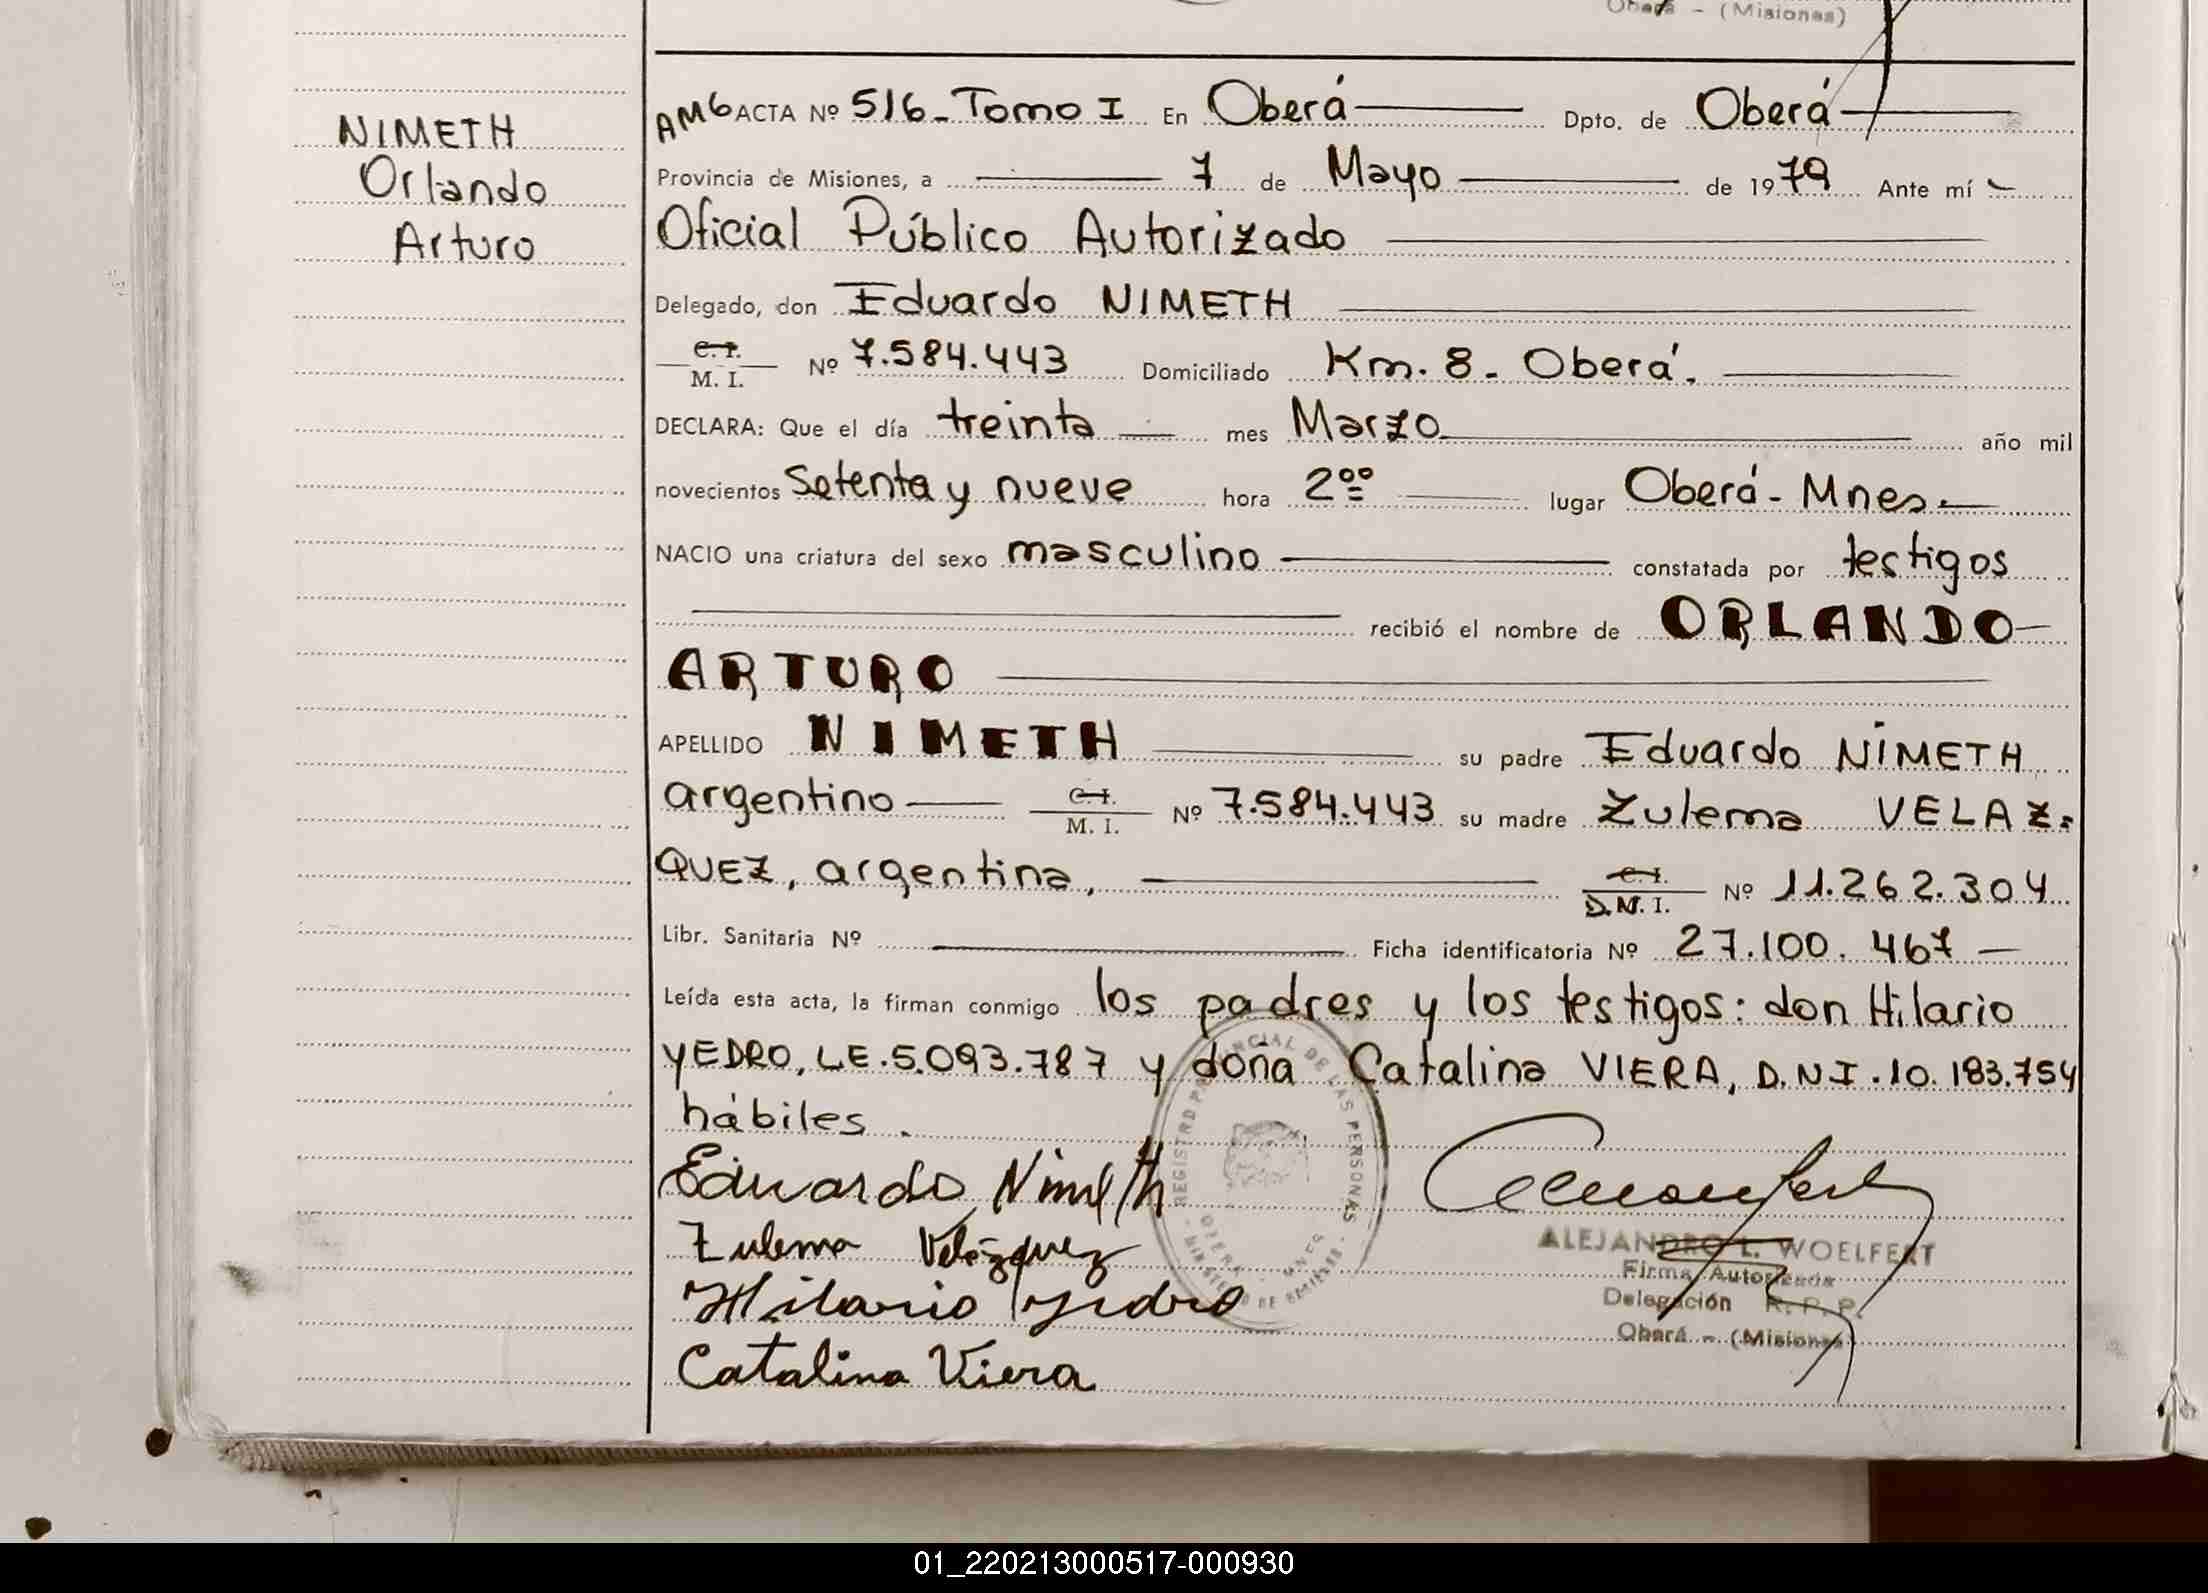 Oberá - (Misiones)
NIMETH
Orlando
Arturo
AMG ACTA Nº 516 - Tomo I En Oberá Dpto. de Oberá
Provincia de Misiones, a 7 de Mayo de 1979 Ante mí
Oficial Público Autorizado
Delegado, don Eduardo NIMETH
C. I. / M. I. Nº 7.584.443 Domiciliado Km. 8 - Oberá.
DECLARA: Que el día treinta mes Marzo año mil
novecientos Setenta y nueve hora 2ºº lugar Oberá - Mnes.
NACIO una criatura del sexo masculino constatada por testigos
recibió el nombre de ORLANDO
ARTURO
APELLIDO NIMETH su padre Eduardo NIMETH
argentino C. I. / M. I. Nº 7.584.443 su madre Zulema VELAZ=
QUEZ, argentina, C. I. / D.N.I. Nº 11.262.304
Libr. Sanitaria Nº Ficha identificatoria Nº 27.100.467
Leída esta acta, la firman conmigo los padres y los testigos: don Hilario
YEDRO, LE.5.093.787 y doña Catalina VIERA, D.N.I.10.183.754
hábiles.
Eduardo Nimeth
Zulema Velázquez
Hilario Yedro
Catalina Viera
REGISTRO PROVINCIAL DE LAS PERSONAS
ALEJANDRO L. WOELFERT
Firma Autorizada
Delegación R. P. P.
Oberá - (Misiones)
01_220213000517-000930